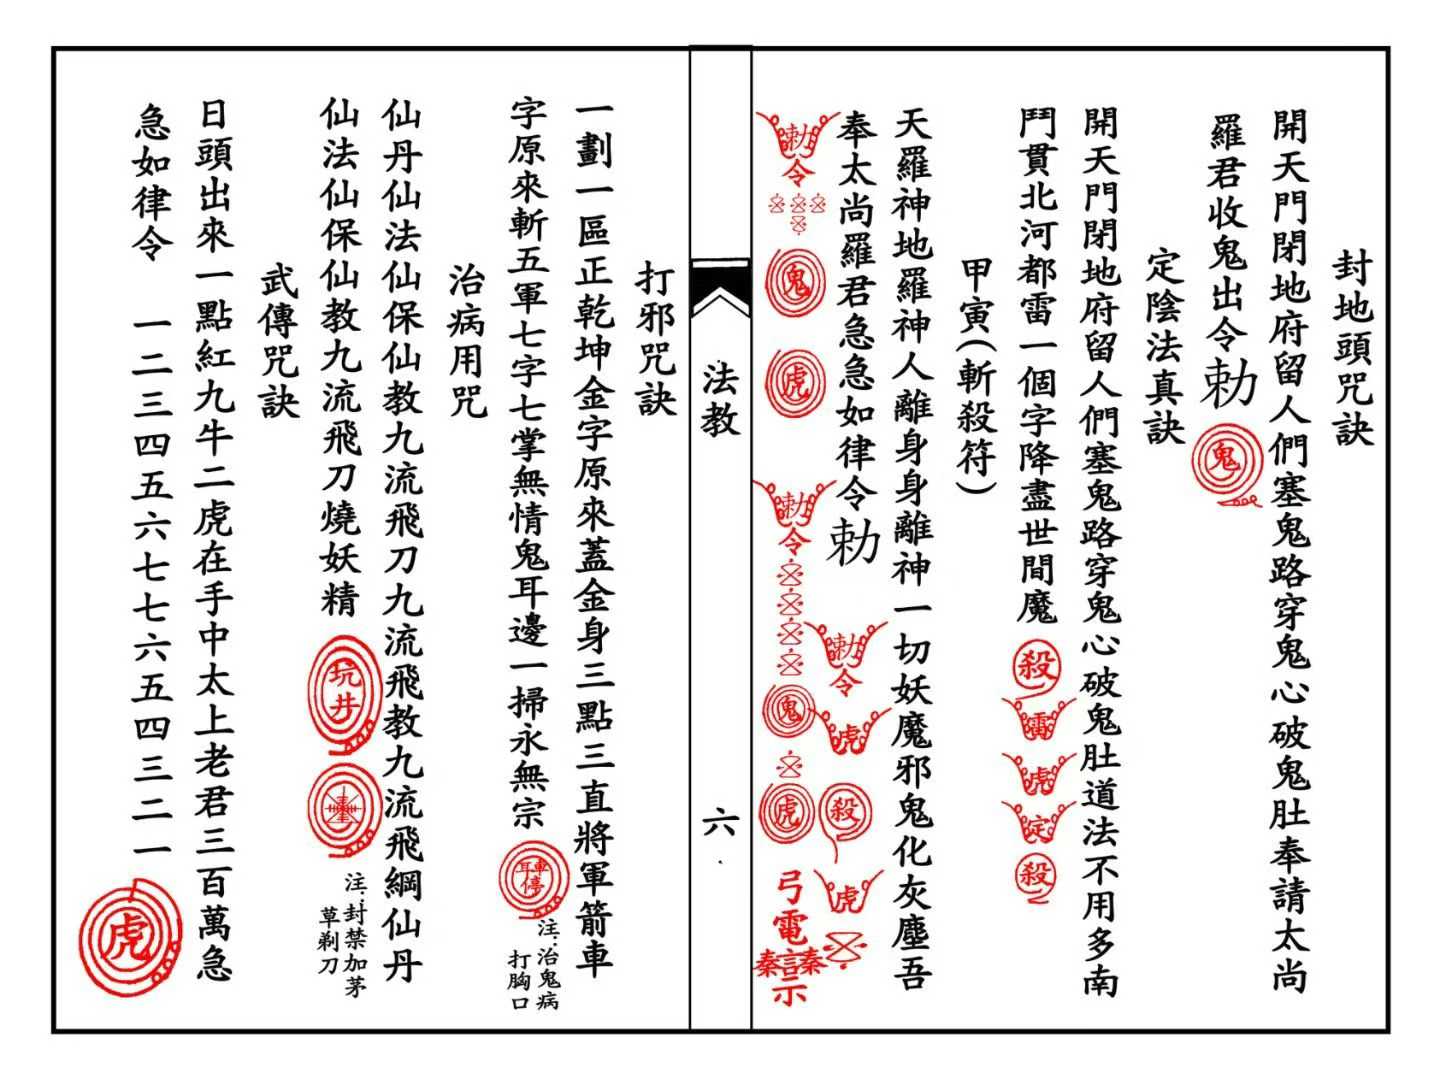 封地頭咒訣
開天門閉地府留人們塞鬼路穿鬼心破鬼肚奉請太尚
羅君收鬼出令勅
鬼
定陰法真訣
開天門閉地府留人們塞鬼路穿鬼心破鬼肚道法不用多南
鬥貫北河都雷一個字降盡世間魔
殺
雷
虎
定
殺
甲寅（斬殺符）
天羅神地羅神人離身身離神一切妖魔邪鬼化灰塵吾
奉太尚羅君急急如律令勅
勅令
虎
殺
虎
勅令
鬼
虎
勅令
鬼
虎
弓電
秦言秦
示
法教
六
打邪咒訣
一劃一區正乾坤金字原來蓋金身三點三直將軍箭車
字原來斬五軍七字七掌無情鬼耳邊一掃永無宗
車耳停
注：治鬼病
打胸口
治病用咒
仙丹仙法仙保仙教九流飛刀九流飛教九流飛綱仙丹
仙法仙保仙教九流飛刀燒妖精
坑井
注：封禁加茅
草剃刀
武傳咒訣
日頭出來一點紅九牛二虎在手中太上老君三百萬急
急如律令 一二三四五六七七六五四三二一
虎